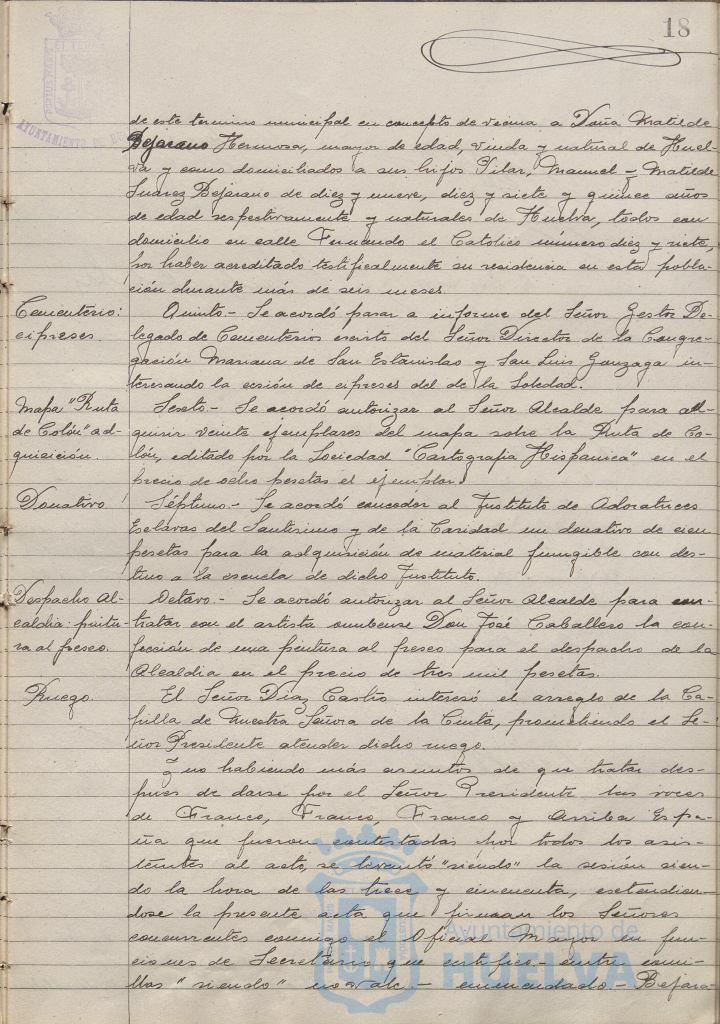 18
de este termino municipal en concepto de vecina a Doña Matilde
Bejarano Hermosa, mayor de edad, viuda y natural de Huel-
va y como domiciliados a sus hijos Pilar, Manuel y Matilde
Suarez Bejarano de diez y nueve, diez y siete y quince años
de edad respectivamente y naturales de Huelva, todos con
domicilio en calle Fernando el Católico número diez y siete,
por haber acreditado testificalmente su residencia en esta pobla-
ción durante más de seis meses.
Cementerio:
cipreses.
Quinto.- Se acordó pasar a informe del Señor Gestor De-
legado de Cementerios escrito del Señor Director de la Congre-
gación Mariana de San Estanislao y San Luis Gonzaga in-
teresando la cesión de cipreses del de la Soledad.
Mapa "Ruta
de Colón" ad-
quisición.
Sexto.- Se acordó autorizar al Señor Alcalde para ad-
quirir veinte ejemplares del mapa sobre la Ruta de Co-
lón, editado por la Sociedad "Cartografia Hispanica" en el
precio de ocho pesetas el ejemplar.
Donativo
Séptimo.- Se acordó conceder al Instituto de Adoratrices
Esclavas del Santisimo y de la Caridad un donativo de cien
pesetas para la adquisición de material fungible con des-
tino a la escuela de dicho Instituto.
Despacho Al-
caldia: pintu-
ra al fresco.
Octavo.- Se acordó autorizar al Señor Alcalde para con-
tratar con el artista onubense Don José Caballero la con-
fección de una pintura al fresco para el despacho de la
Alcaldia en el precio de tres mil pesetas.
Ruego.
El Señor Diaz Castro interesó el arreglo de la Ca-
pilla de Nuestra Señora de la Cinta, prometiendo el Se-
ñor Presidente atender dicho ruego.
Y no habiendo más asuntos de que tratar des-
pues de darse por el Señor Presidente las voces
de Franco, Franco, Franco y Arriba Espa-
ña que fueron contestadas por todos los asis-
tentes al acto, se levantó "siendo" la sesión sien-
do la hora de las trece y cincuenta, extendien-
dose la presente acta que firman los Señores
concurrentes conmigo el Oficial Mayor en fun-
ciones de Secretario que certifico.- entre comi-
llas "siendo" no vale.- enmendado.- Bejara-
Ayuntamiento de
HUELVA